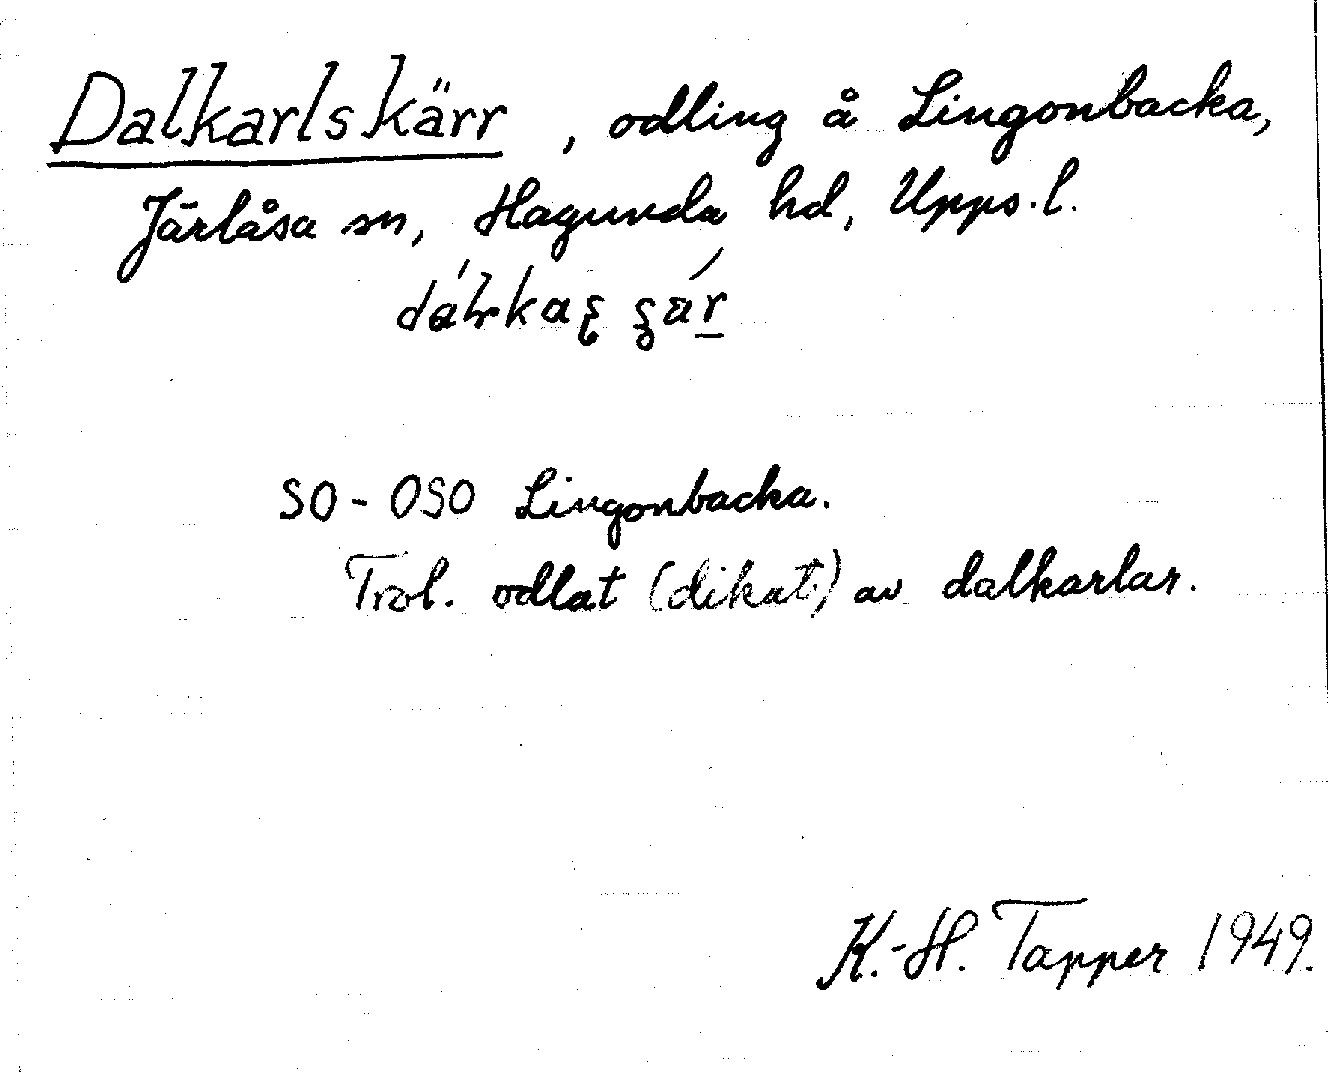 Dalkarlskärr, odling å Lingonbacka,
Järlåsa sn, Hagunda hd, Upps. l.
SO - OSO Lingonbacka.
Trol. odlat (dikat) av dalkarlar.
K.-H. Tapper 1949.